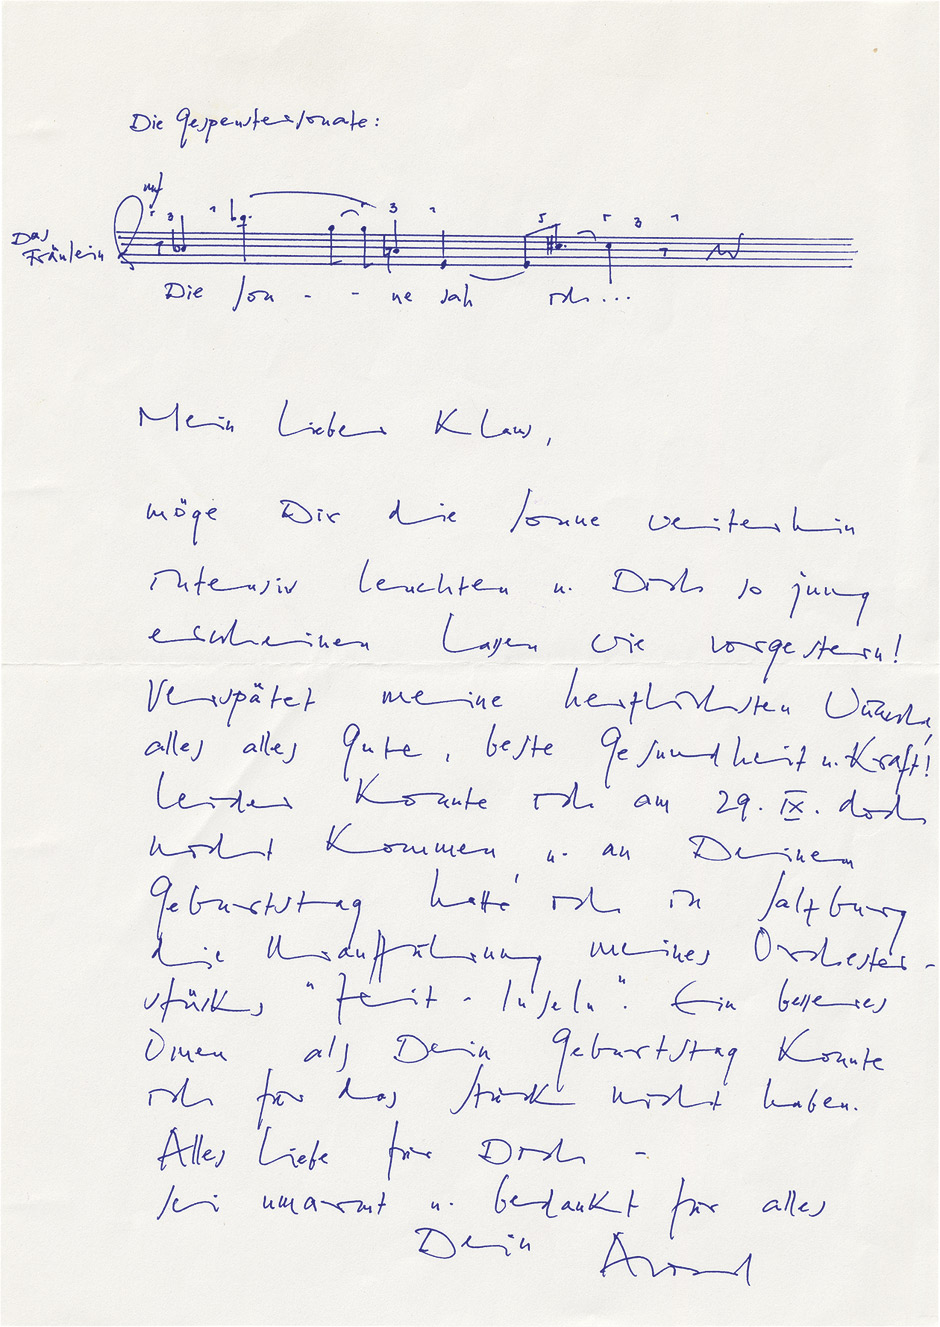 Die Gespenstersonate:
mf
3 3 5 3
Das
Fräulein
Die Son - - ne sah ich...
Mein lieber Klaus,
möge Dir die Sonne weiterhin
intensiv leuchten u. Dich so jung
erscheinen lassen wie vorgestern!
Verspätet meine herzlichsten Wünsche,
alles alles Gute, beste Gesundheit u. Kraft!
Leider konnte ich am 29. IX. doch
nicht kommen u. an Deinem
Geburtstag hatte ich in Salzburg
die Uraufführung meines Orchester-
stücks "Zeit-Inseln". Ein besseres
Omen als Dein Geburtstag konnte
ich für das Stück nicht haben.
Alles Liebe für Dich -
sei umarmt u. bedankt für alles
Dein Aribert